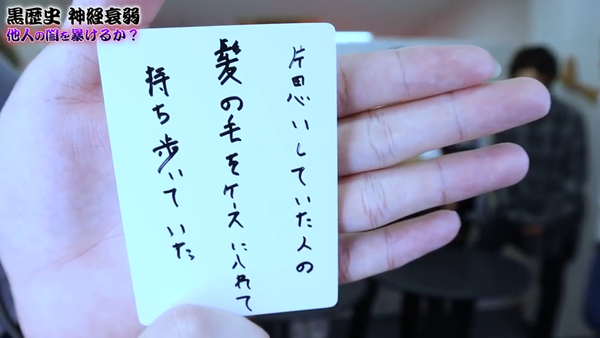 黒歴史 神経衰弱
他人の闇を暴けるか？
片思いしていた人の
髪の毛をケースに入れて
持ち歩いていた